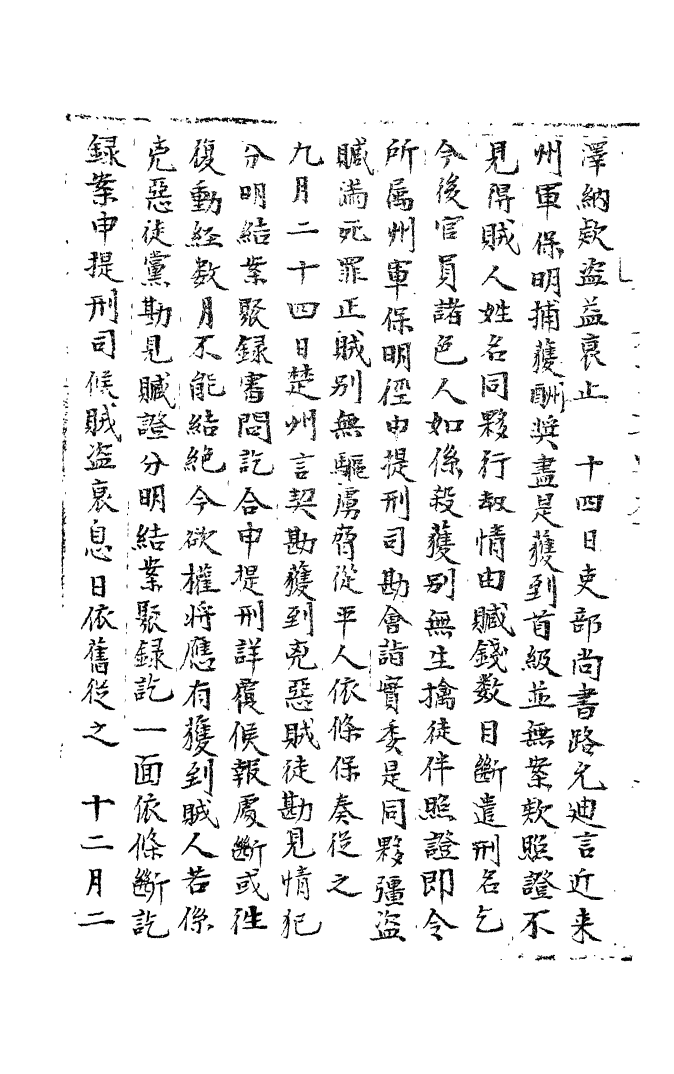 澤納欵盗益衰止　十四日吏部尚書路允迪言近来
州軍保明捕獲酬奬盡是獲到首級並無案欵照證不
見得賊人姓名同夥行刼情由贓錢数目斷遣刑名乞
今後官員諸色人如係殺獲别無生擒徒伴照證即令
所属州軍保明徑申提刑司勘會詣實委是同夥彊盗
贓滿死罪正賊别無驅虜脅從平人依條保奏從之
九月二十四日楚州言契勘獲到兇惡賊徒勘見情犯
分明結案聚録審問訖合申提刑詳覆候報處斷或往
復動經数月不能結絶今欲權将應有獲到賊人若係
兇惡徒黨勘見贓證分明結案聚録訖一面依條斷訖
録案申提刑司候賊盗衰息日依舊從之　十二月二